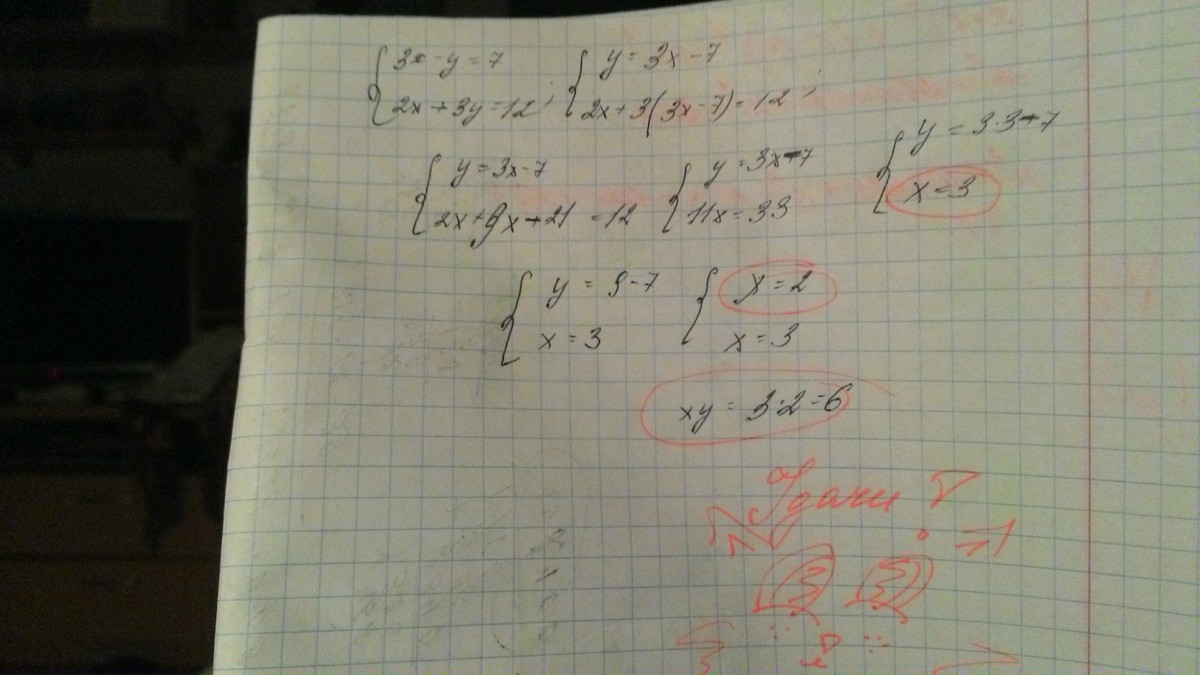 { 3x - y = 7
2x + 3y = 12 ;
{ y = 3x - 7
2x + 3(3x - 7) = 12 ;
{ y = 3x - 7
2x + 9x - 21 = 12
{ y = 3x - 7
11x = 33
{ y = 3·3 - 7
x = 3
{ y = 9 - 7
x = 3
{ x = 2
x = 3
xy = 3·2 = 6
Удачи